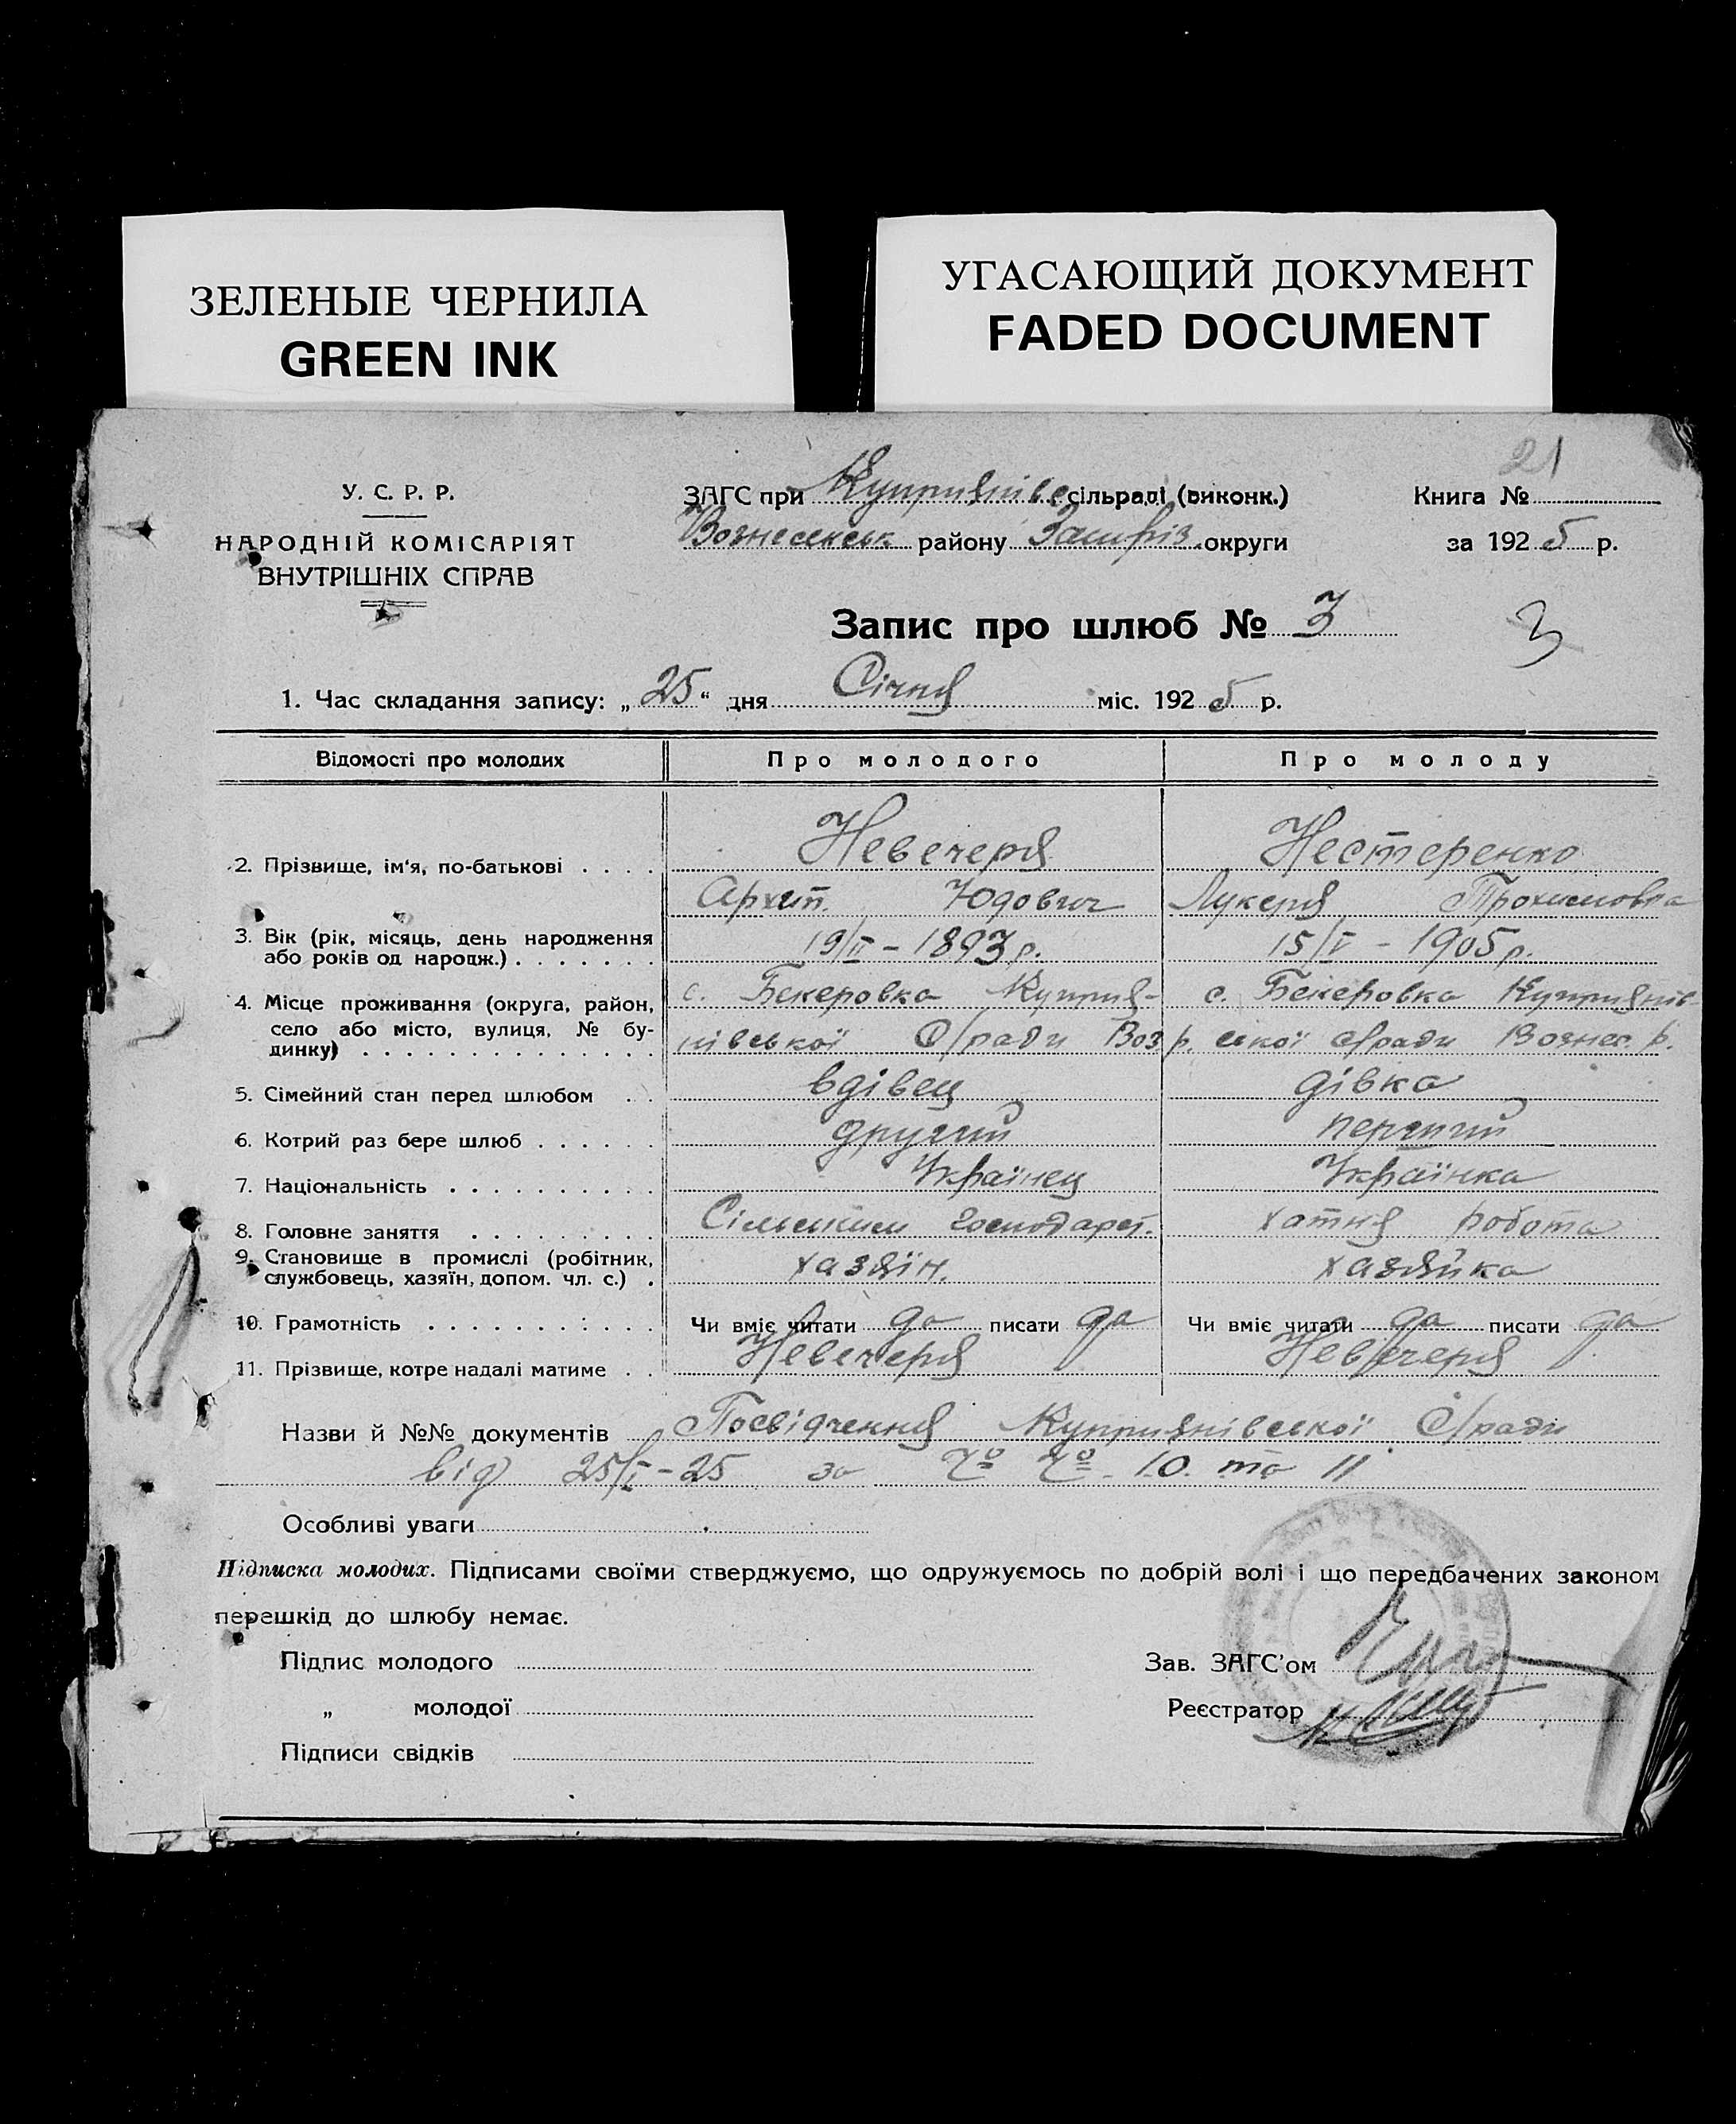 ЗЕЛЕНЫЕ ЧЕРНИЛА
GREEN INK
УГАСАЮЩИЙ ДОКУМЕНТ
FADED DOCUMENT
21
У. С. Р. Р.
НАРОДНІЙ КОМІСАРІЯТ
ВНУТРІШНІХ СПРАВ
ЗАГС при Куприянівс. сільраді (виконк.)
Вознесенськ району округи
Книга №
за 1925 р.
Запис про шлюб № 3
3
1. Час складання запису: „25“ дня Січня міс. 1925 р.
Відомості про молодих Про молодого Про молоду
2. Прізвище, ім'я, по-батькові . . . . Невечеря Нестеренко
Архип. Юдович Лукеря Трохимовна
3. Вік (рік, місяць, день народження
або років од народж.) . . . . . . . 19/II - 1893 р. 15/I - 1905 р.
4. Місце проживання (округа, район,
село або місто, вулиця, № бу-
динку) . . . . . . . . . . . . . .
с. Бекеровка Куприя- с. Бекеровка Куприянів-
нівської С/ради Воз. р. ської с/ради Вознес. р.
5. Сімейний стан перед шлюбом . . вдівец дівка
6. Котрий раз бере шлюб . . . . . . другий перший
7. Національність . . . . . . . . . . Українец Українка
8. Головне заняття . . . . . . . . . Сільським господарст. хатня робота
9. Становище в промислі (робітник,
службовець, хазяїн, допом. чл. с.) . хазяїн. хазяйка
10. Грамотність . . . . . . . . . . . Чи вміє читати да писати да Чи вміє читати да писати да
11. Прізвище, котре надалі матиме . . Невечеря Невечеря
Назви й №№ документів Посвідчення Куприянівської С/ради
від 25/I - 25 за № № 10. та 11
Особливі уваги
Підписка молодих. Підписами своїми стверджуємо, що одружуємось по добрій волі і що передбачених законом
перешкід до шлюбу немає.
Підпис молодого
„ молодої
Підписи свідків
Зав. ЗАГС'ом
Реєстратор